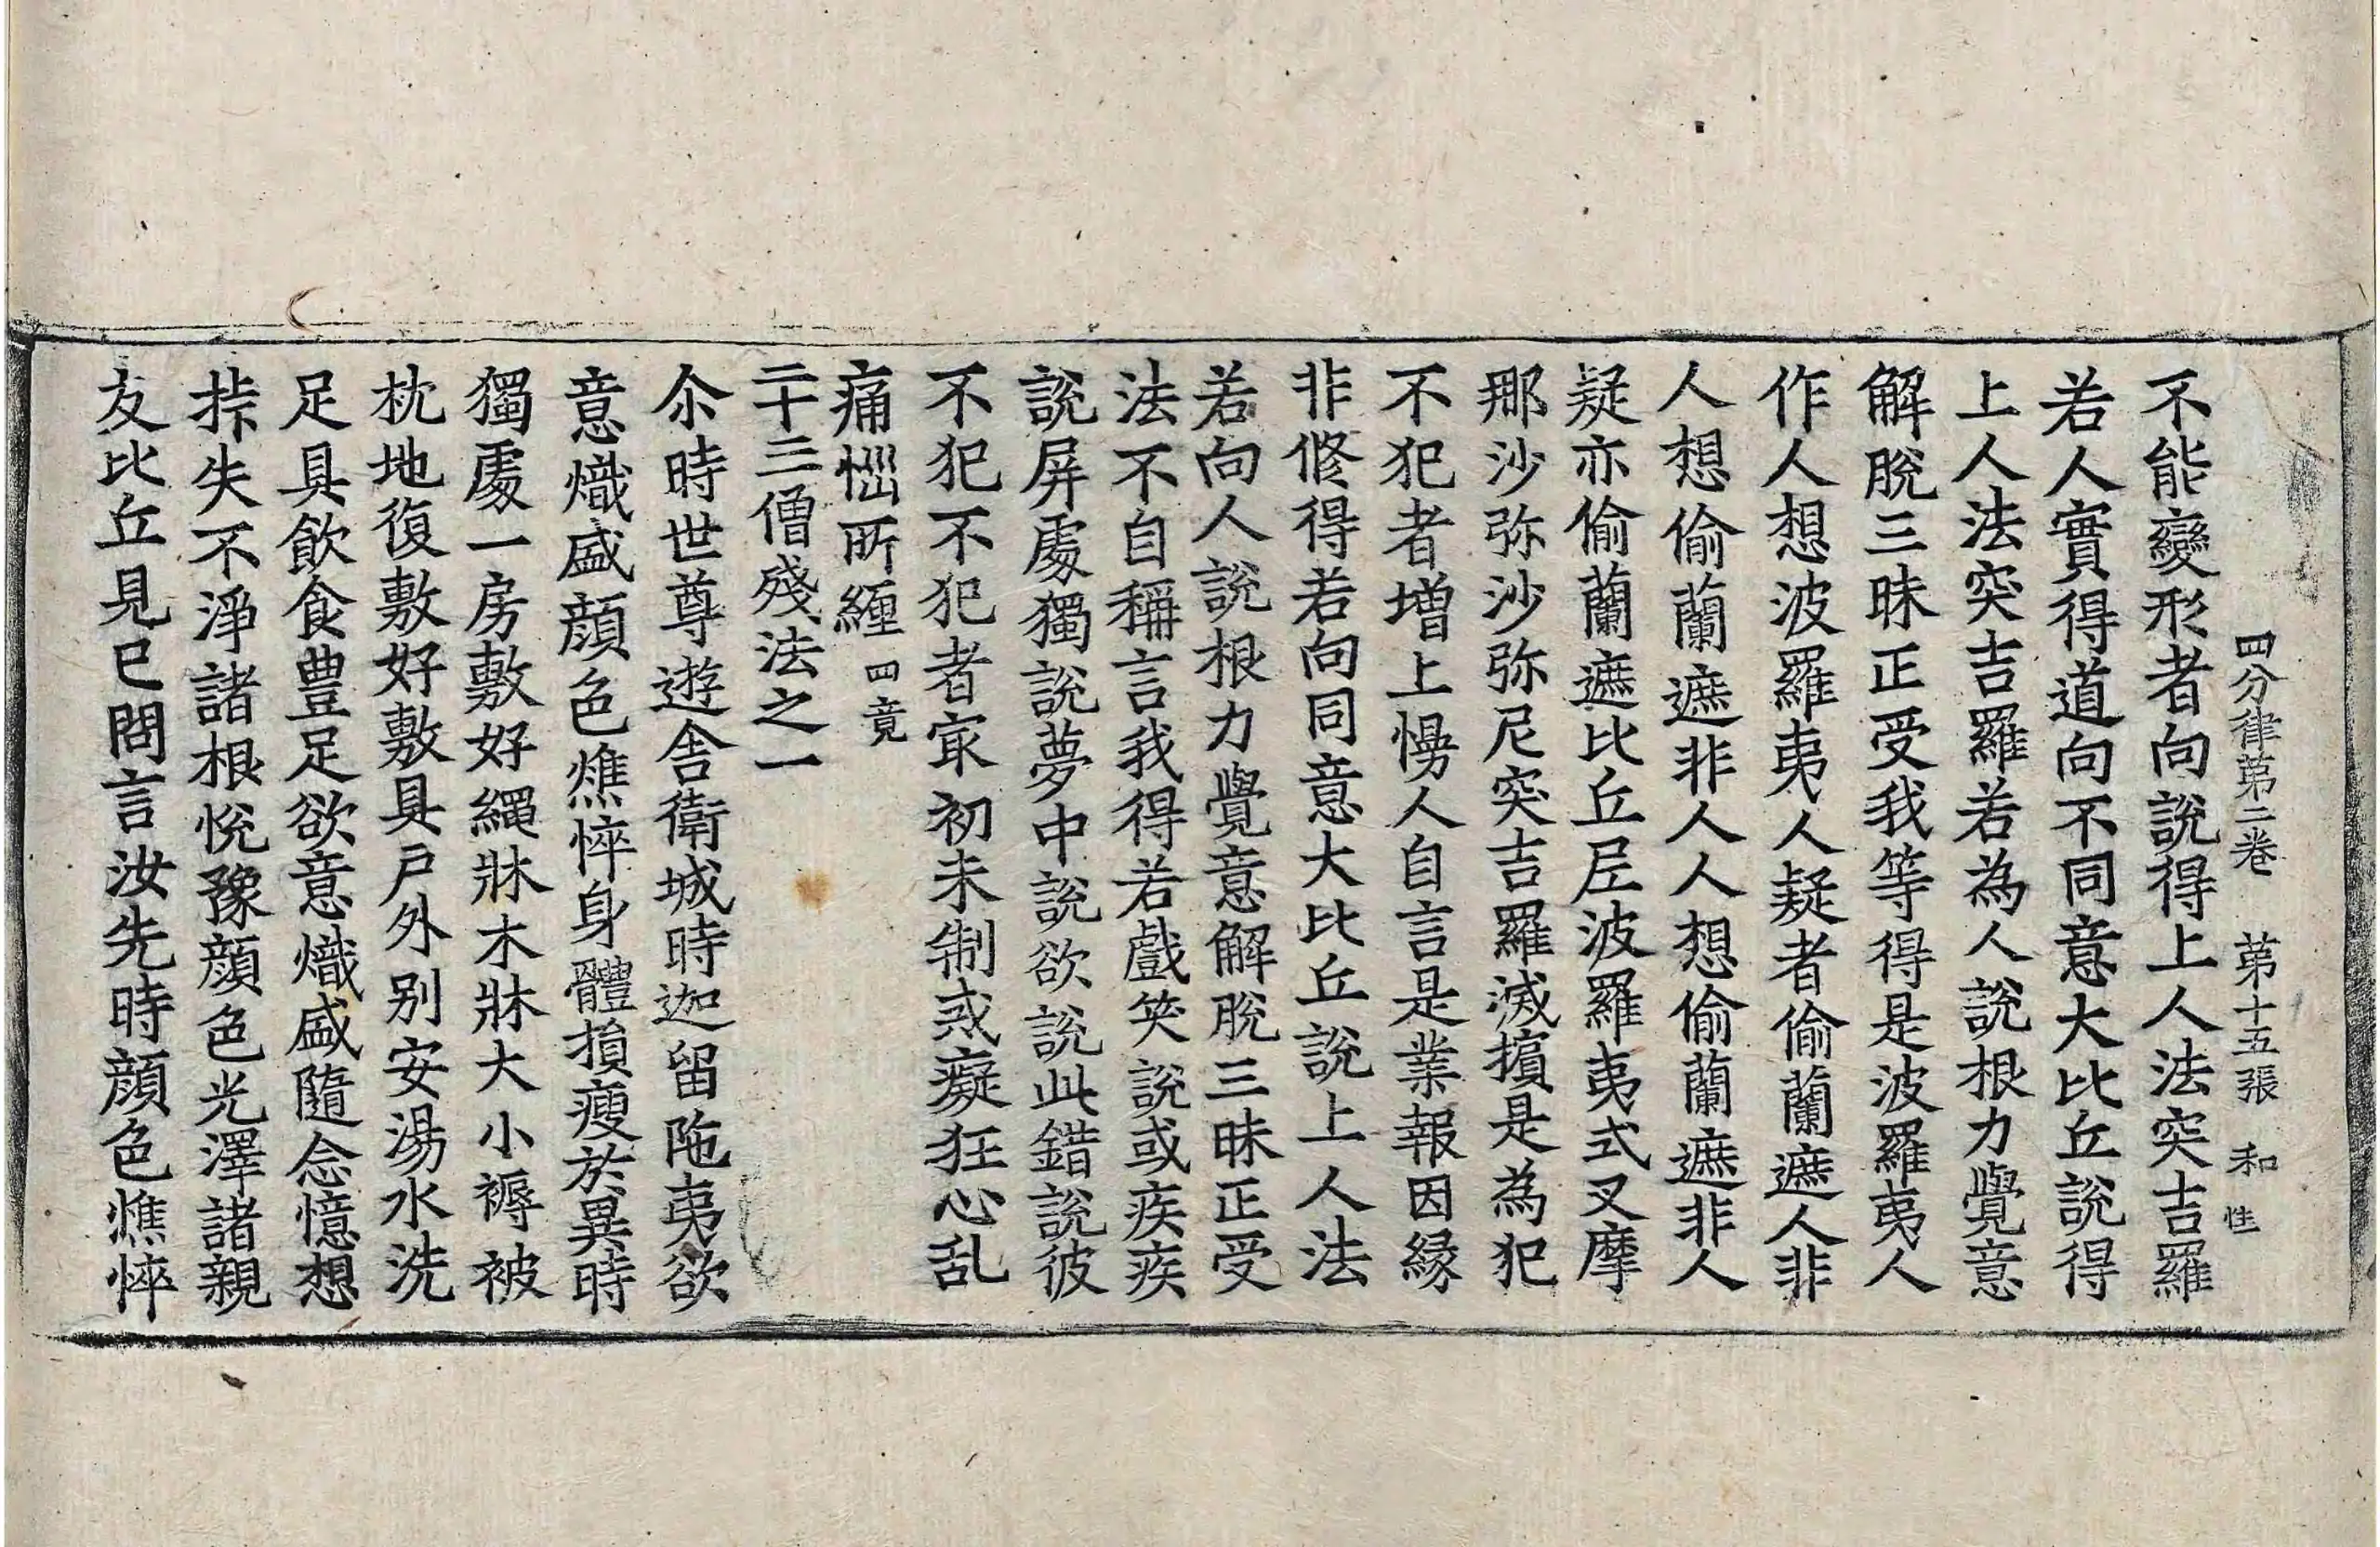 四分律第二卷 第十五張 和 性
不能變形者向說得上人法突吉羅
若人實得道向不同意大比丘說得
上人法突吉羅若為人說根力覺意
解脫三昧正受我等得是波羅夷人
作人想波羅夷人疑者偷蘭遮人非
人想偷蘭遮非人人想偷蘭遮非人
疑亦偷蘭遮比丘尼波羅夷式叉摩
那沙弥沙弥尼突吉羅滅擯是為犯
不犯者增上慢人自言是業報因緣
非修得若向同意大比丘說上人法
若向人說根力覺意解脫三昧正受
法不自稱言我得若戲笑說或疾疾
說屏處獨說夢中說欲說此錯說彼
不犯不犯者冣初未制或癡狂心乱
痛惱所纏 四竟
二十三僧殘法之一
尒時世尊遊舍衛城時迦留陁夷欲
意熾盛顏色燋悴身體損瘦於異時
獨處一房敷好繩牀木牀大小褥被
枕地復敷好敷具戶外別安湯水洗
足具飲食豊足欲意熾盛隨念憶想
𢫫失不淨諸根悅豫顏色光澤諸親
友比丘見已問言汝先時顏色燋悴